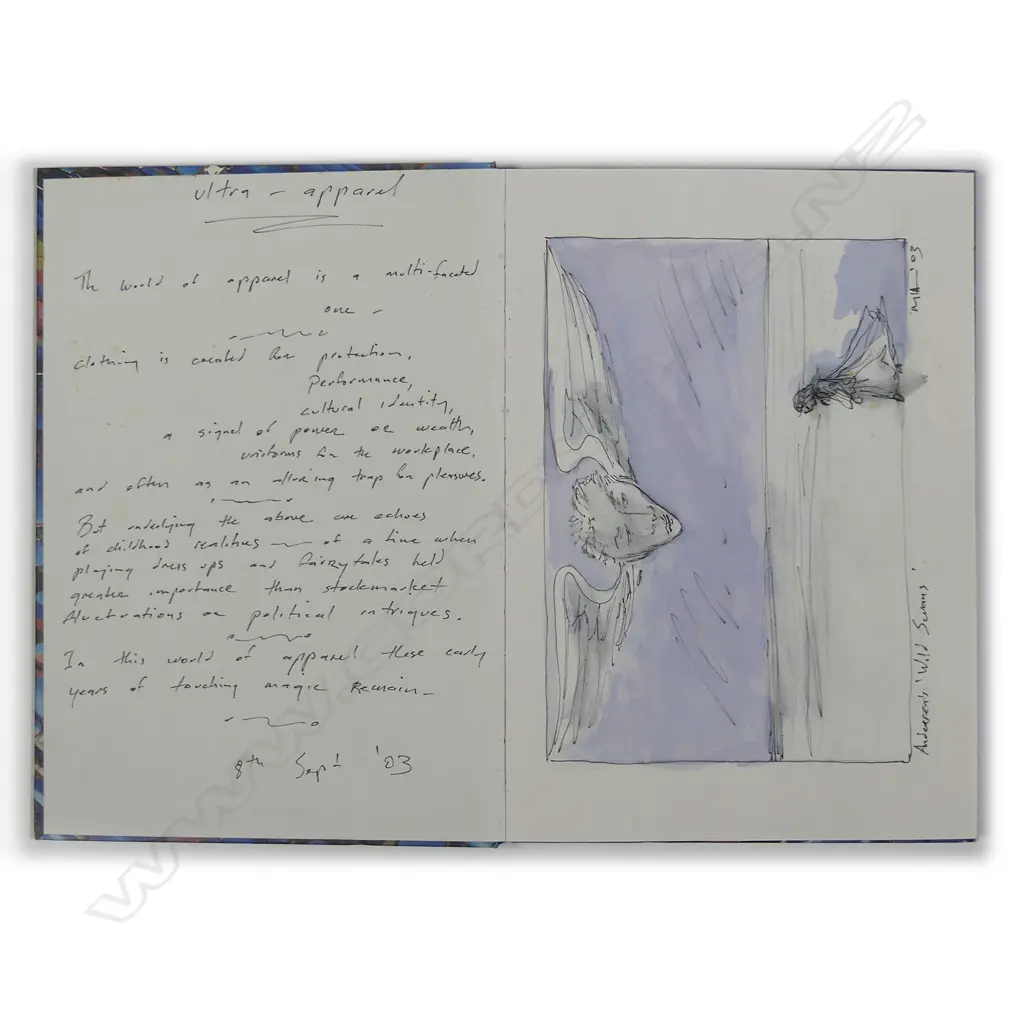 ultra - apparel
The world of apparel is a multi-faceted
one -
clothing is created for protection,
performance,
cultural identity,
a signal of power or wealth,
uniforms for the workplace,
and often as an alluring trap for pleasures.
But underlying the above are echoes
of childhood realities — of a time when
playing dress ups and fairytales held
greater importance than stockmarket
fluctuations or political intrigues.
In this world of apparel these early
years of touching magic remain -
8th Sept '03
'03
Andersen's 'Wild Swans'